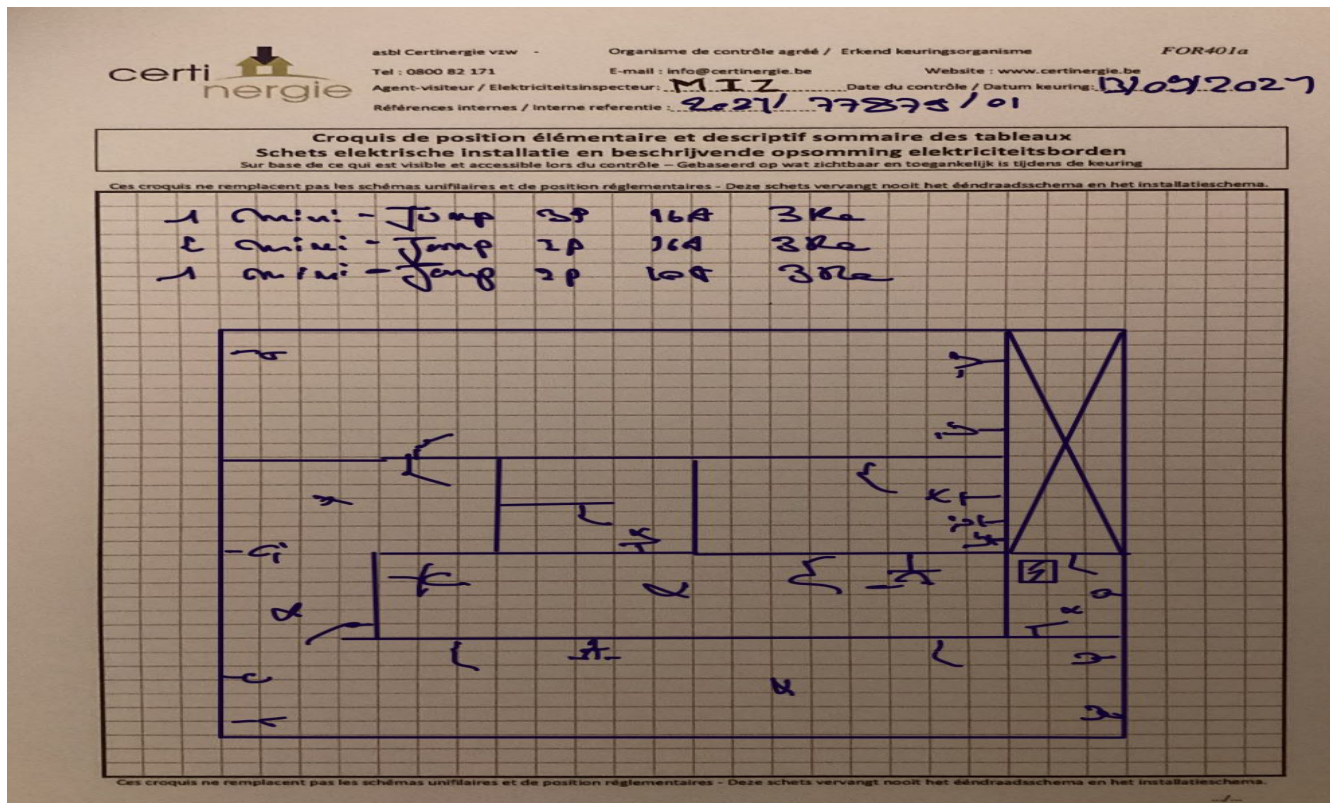 certinergie
asbl Certinergie vzw - Organisme de contrôle agréé / Erkend keuringsorganisme FOR401a
Tel : 0800 82 171 E-mail : info@certinergie.be Website : www.certinergie.be
Agent-visiteur / Elektriciteitsinspecteur: MIZ Date du contrôle / Datum keuring: 13/09/2021
Références internes / Interne referentie : 2021/ 77875/01
Croquis de position élémentaire et descriptif sommaire des tableaux
Schets elektrische installatie en beschrijvende opsomming elektriciteitsborden
Sur base de ce qui est visible et accessible lors du contrôle – Gebaseerd op wat zichtbaar en toegankelijk is tijdens de keuring
Ces croquis ne remplacent pas les schémas unifilaires et de position réglementaires - Deze schets vervangt nooit het ééndraadsschema en het installatieschema.
1 mini - Jump 3P 16A
mini - Jump 2P 16A
1 mini - Jump 2P 10A
Ces croquis ne remplacent pas les schémas unifilaires et de position réglementaires - Deze schets vervangt nooit het ééndraadsschema en het installatieschema.